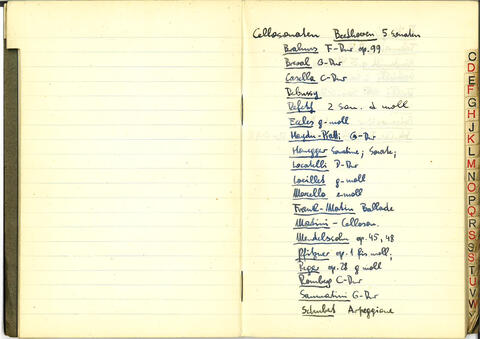 Cellosonaten Beethoven 5 Sonaten
Brahms F-Dur op. 99
Breval G-Dur
Casella C-Dur
Debussy
2 Son. d moll
Eccles g-moll
Haydn-Piatti C-Dur
Honegger Sonatine; Sonate;
Locatelli D-Dur
Loeillet g-moll
Marcello e-moll
Frank-Martin Ballade
Martini - Celloson.
Mendelssohn op. 45, 48
Pfitzner op. 1 fis moll,
Reger op. 28 g moll
Romberg C-Dur
Sammartini G-Dur
Schubert Arpeggione
C
D
E
F
G
H
J
K
L
M
N
O
P
Q
R
S
S
T
U
V
W